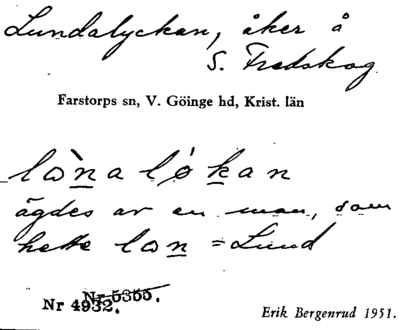 Lundalyckan, åker å
S. Fredskog
Farstorps sn, V. Göinge hd, Krist. län
lòn̲a lǿk̲an
ägdes av en man, som
hette lon̲ = Lund
Nr 5355.
Nr 4932.
Erik Bergenrud 1951.